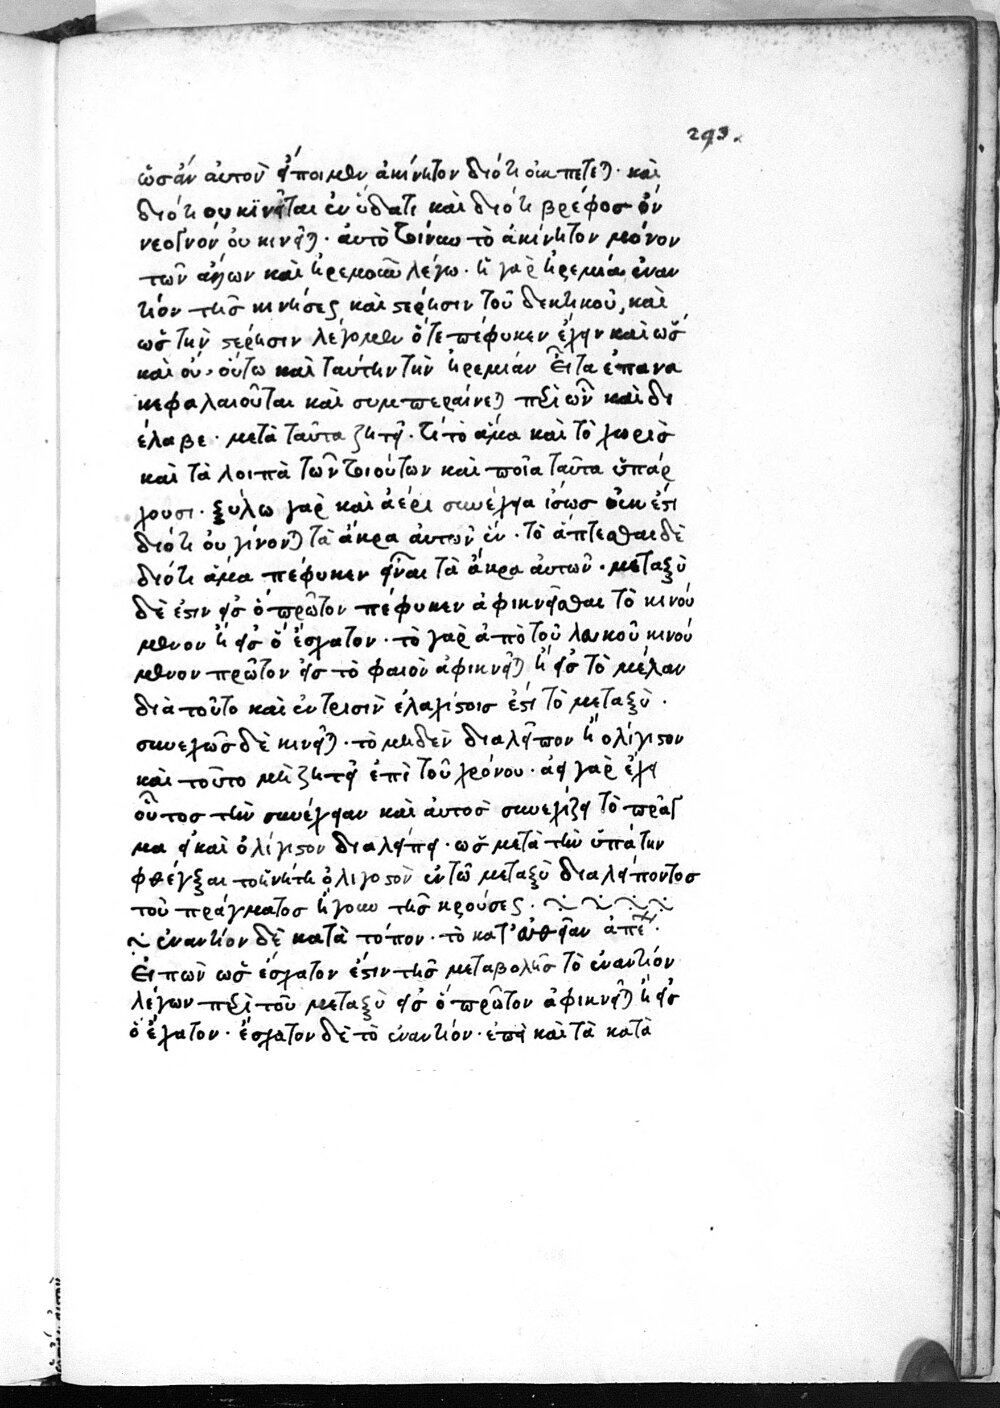 293.
ὡσὰν αὐτὸν εἴποιμεν ἀκίνητον διότι οὐκ πέτεται· καὶ
διότι οὐ κινεῖται ἐν ὕδατι καὶ διότι βρέφος ὂν
νεογνὸν οὐ κινεῖται· αὐτὸ τοίνυν τὸ ἀκίνητον μόνον
τῶν ἄλλων καὶ ἠρεμοῦν λέγω· ἡ γὰρ ἠρεμία ἐναν
τίον τῆς κινήσεως καὶ στέρησιν τοῦ δεκτικοῦ, καὶ
ὡς τὴν στέρησιν λέγομεν ὅτε πέφυκεν ἔχειν καὶ ὡς
καὶ οὗ· οὕτω καὶ ταύτην τὴν ἠρεμίαν εἶτα ἐπανα
κεφαλαιοῦται καὶ συμπεραίνεται περὶ ὧν καὶ δι
έλαβε· μετὰ ταῦτα ζητεῖ· τί τὸ ἅμα καὶ τὸ χωρὶς
καὶ τὰ λοιπὰ τῶν τοιούτων καὶ ποῖα ταῦτα ὑπάρ
χουσι· ξύλω γὰρ καὶ ἀέρι συνέχεια ἴσως οὐκ ἔστι
διότι οὐ γίνονται τὰ ἄκρα αὐτῶν ἕν· τὸ ἅπτεσθαι δὲ
διότι ἅμα πέφυκεν εἶναι τὰ ἄκρα αὐτῶν· μεταξὺ
δὲ ἐστιν εἰς ὃ πρῶτον πέφυκεν ἀφικνεῖσθαι τὸ κινού
μενον ἢ εἰς ὃ ἔσχατον· τὸ γὰρ ἀπὸ τοῦ λευκοῦ κινού
μενον πρῶτον εἰς τὸ φαιὸν ἀφικνεῖται ἢ εἰς τὸ μέλαν
διὰ τοῦτο καὶ ἐν τρισὶν ἐλαχίστοις ἐστὶ τὸ μεταξὺ·
συνεχῶς δὲ κινεῖται· τὸ μηδὲν διαλεῖπον ἢ ὀλίγιστον
καὶ τοῦτο μὴ ζητεῖ ἐπὶ τοῦ χρόνου· ἀεὶ γὰρ ἔχει
οὗτος τὴν συνέχειαν καὶ αὐτὸς συνεχίζει τὸ πρᾶγ
μα εἰ καὶ ὀλίγιστον διαλείπει· ὡς μετὰ τὴν ὑπάτην
φθέγξαι τὴν νήτην ὀλιγοστὸν ἐν τῶ μεταξὺ διαλείποντος
τοῦ πράγματος ἤγουν τῆς κρούσεως·
ἐναντίον δὲ κατὰ τόπον· τὸ κατ' εὐθεῖαν ἀπέ·
Εἰπὼν ὡς ἔσχατον ἐστιν τῆς μεταβολῆς τὸ ἐναντίον
λέγων περὶ τοῦ μεταξὺ εἰς ὃ πρῶτον ἀφικνεῖται ἢ εἰς
ὃ ἔσχατον· ἔσχατον δὲ τὸ ἐναντίον· ἐπεὶ καὶ τὰ κατὰ